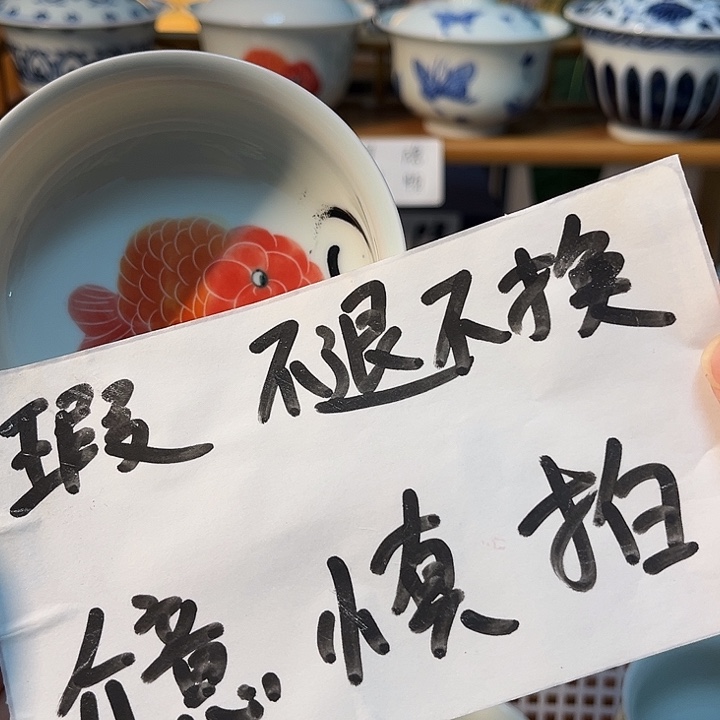 瑕 不退不换
介意 慎拍